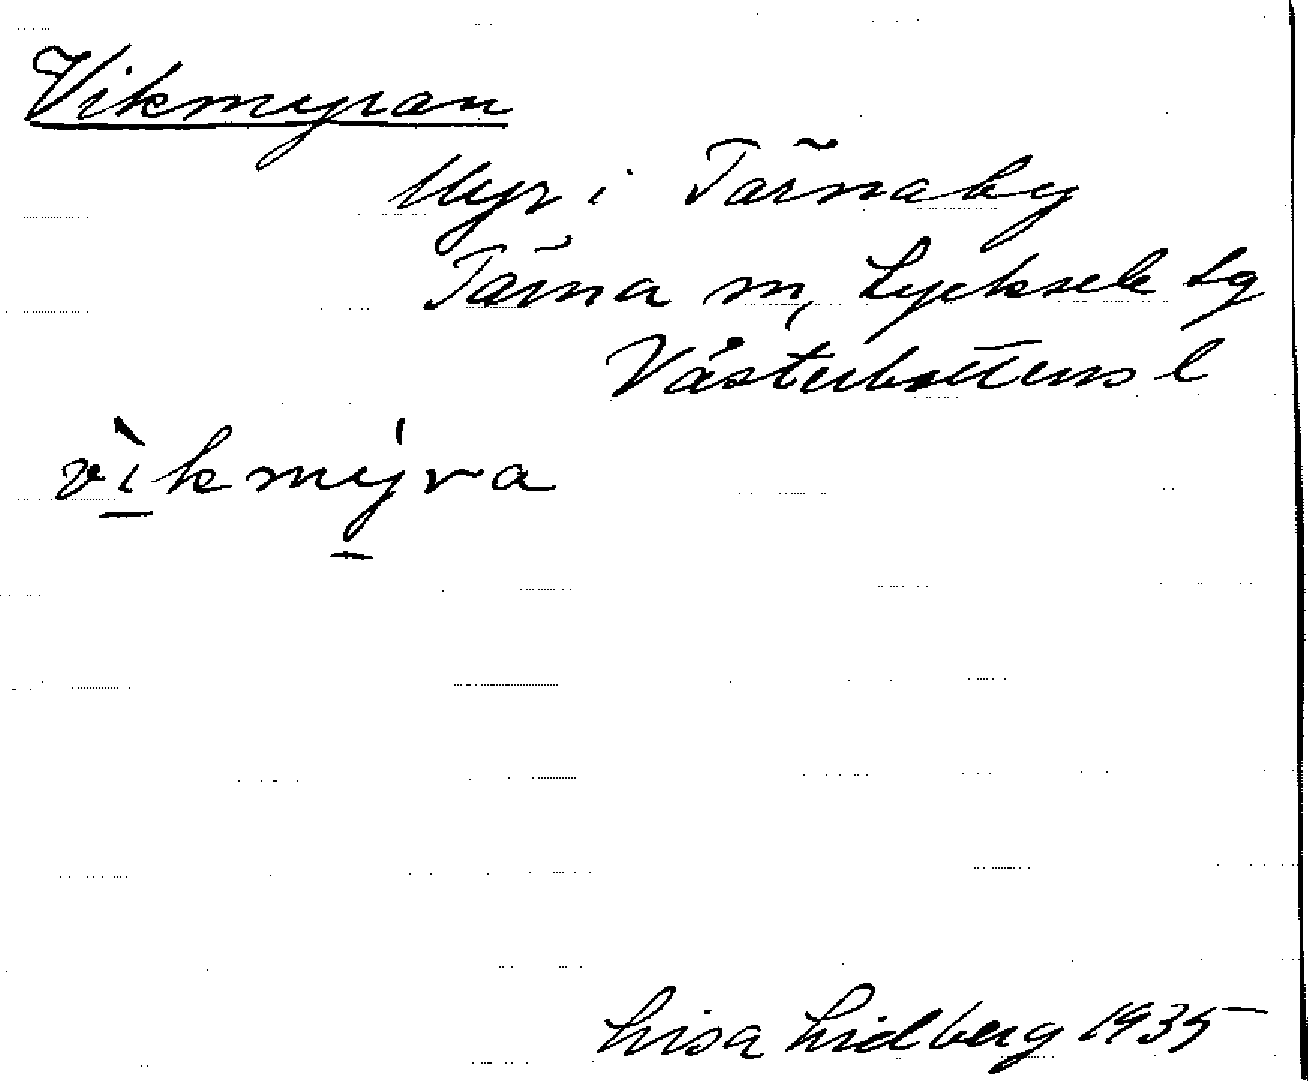 Vikmyran
Myr i Tärnaby
Tärna sn, Lycksele lg
Västerbottens l
vìkmýra
Lisa Lidberg 1935